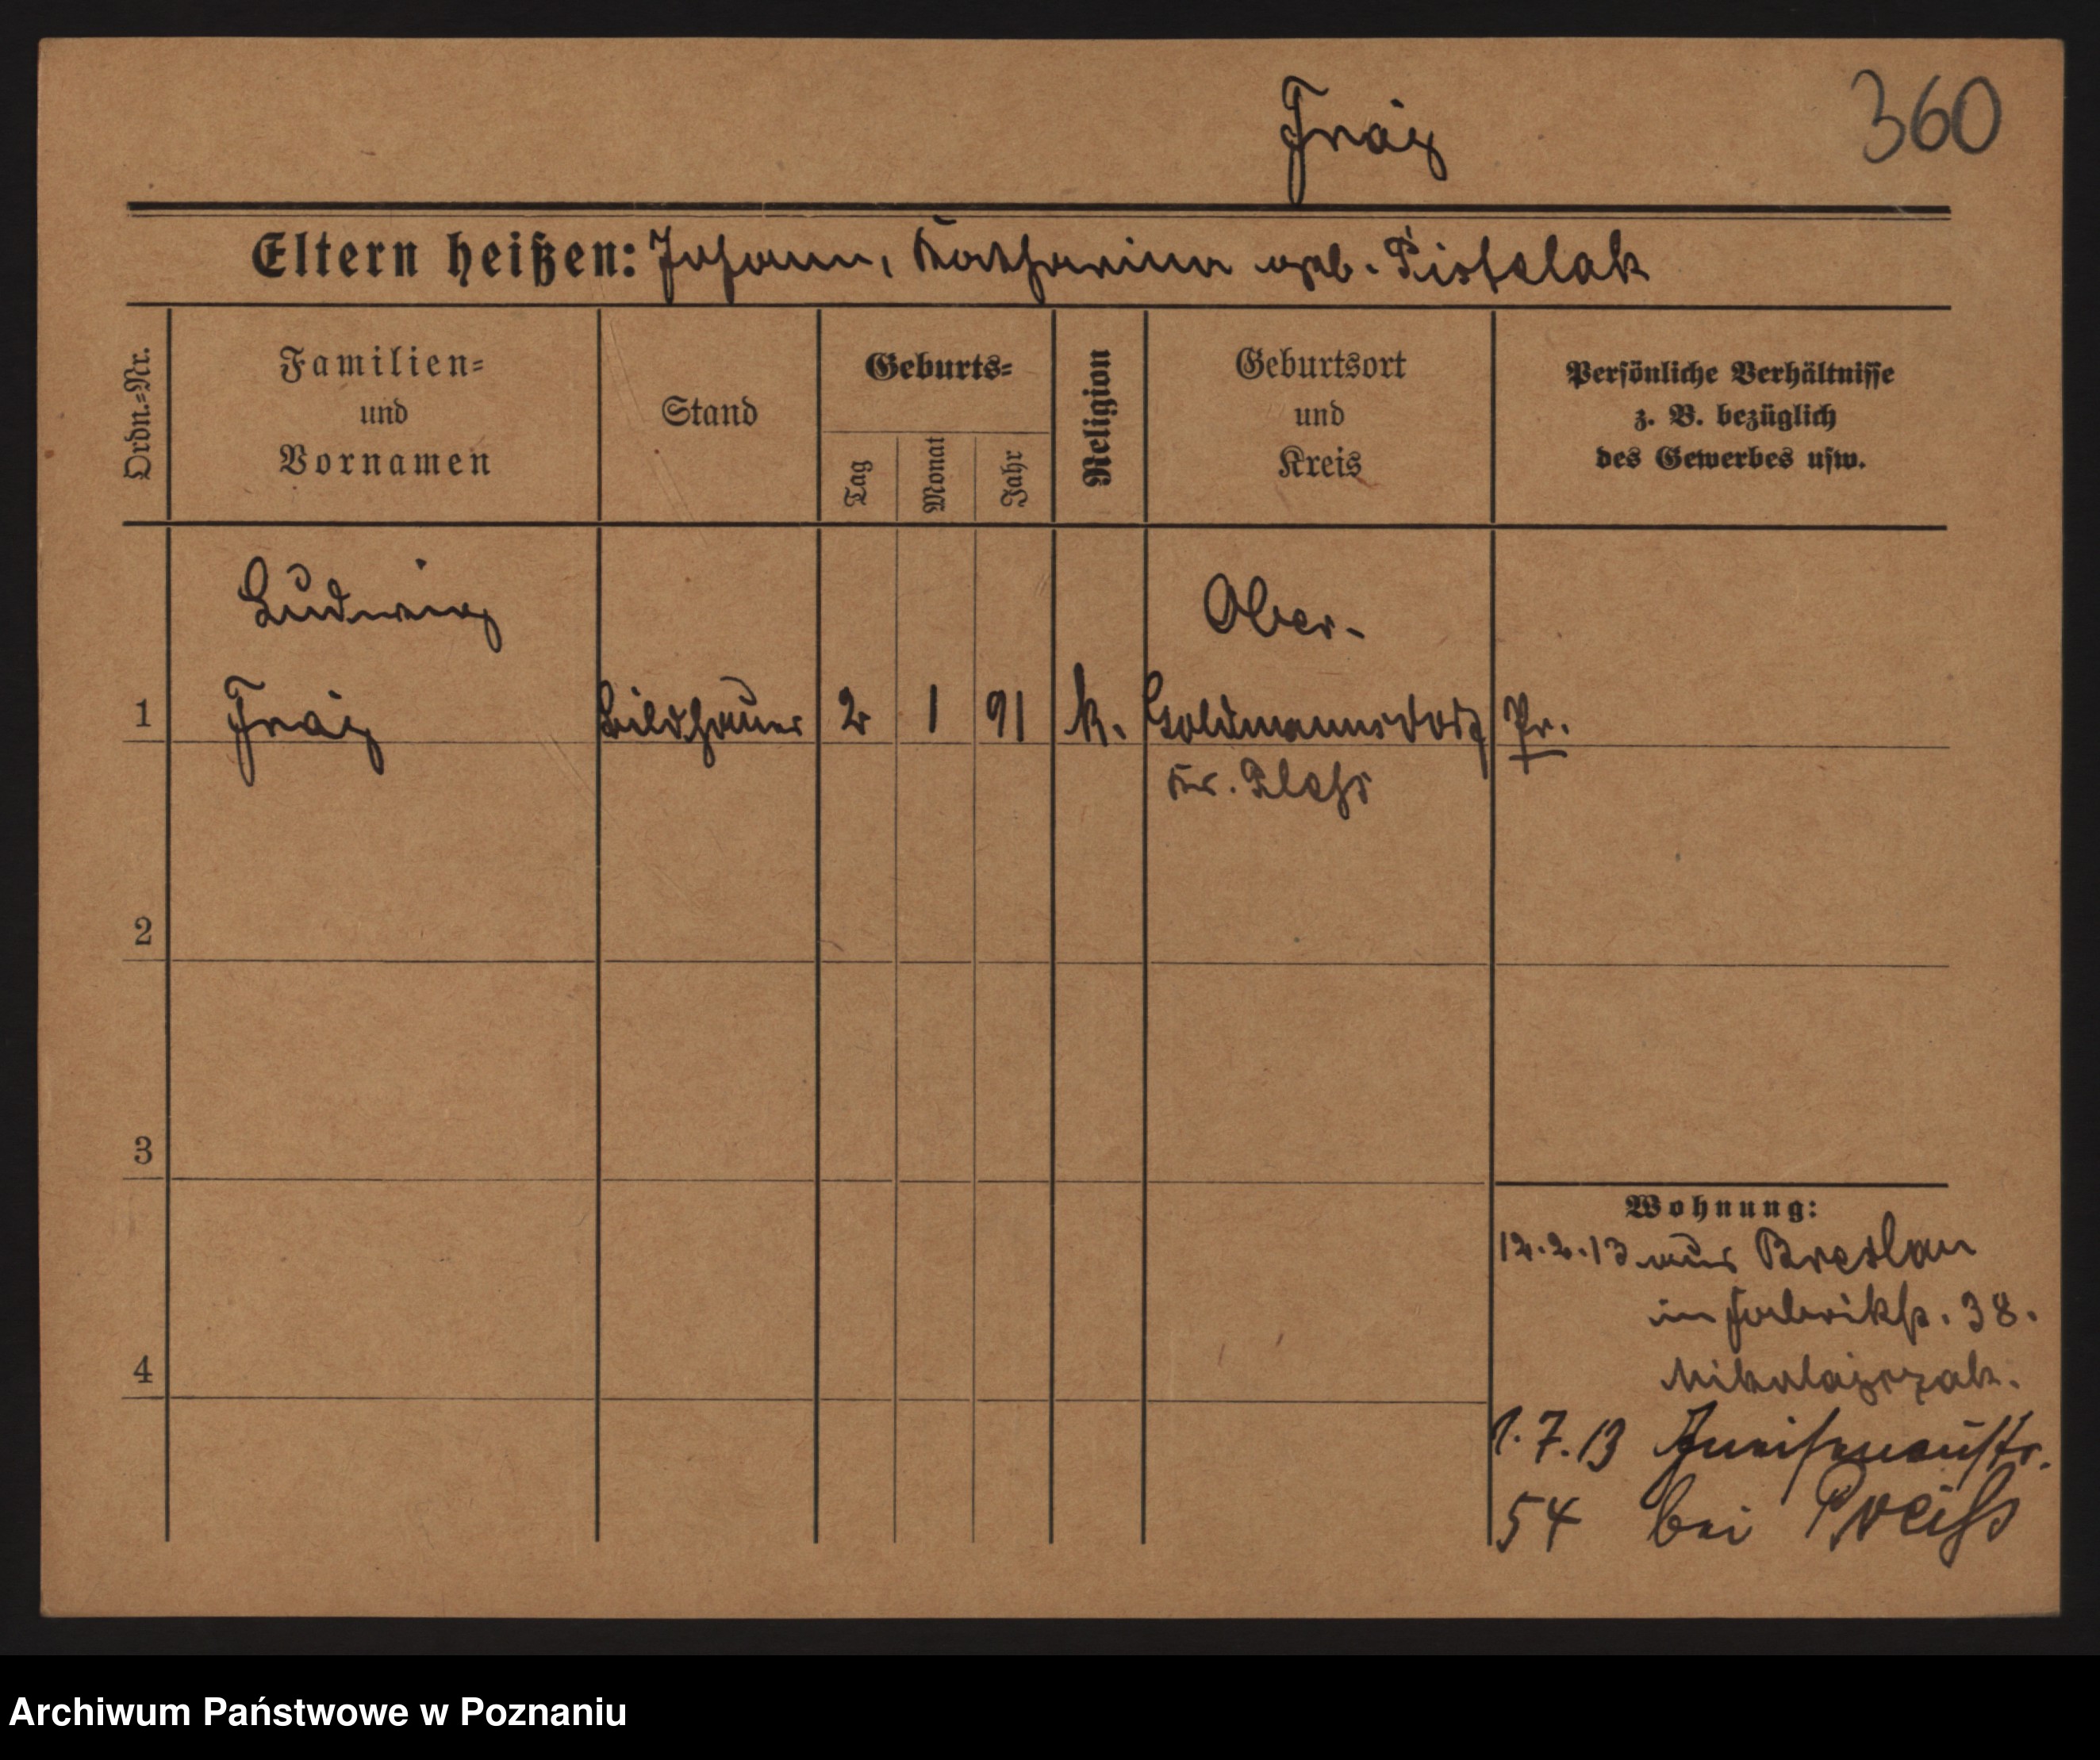 Fraiz
360
Eltern heißen: Johann, Katharina geb. Pistelak
Ordn.=Nr.
Familien=
und
Vornamen
Stand
Geburts=
Tag
Monat
Jahr
Religion
Geburtsort
und
Kreis
Persönliche Verhältnisse
z. B. bezüglich
des Gewerbes usw.
Ludwig
Ober-
1
Bildhauer 2 1 91 k. Goldmannsdorf Pr.
Kr. Pless
2
3
Wohnung:
12.2.13 aus Breslau
in Fabrikstr. 38.
4
Mikolajczak.
1.7.13 Gneisenaustr.
54 bei Preiss
Archiwum Państwowe w Poznaniu